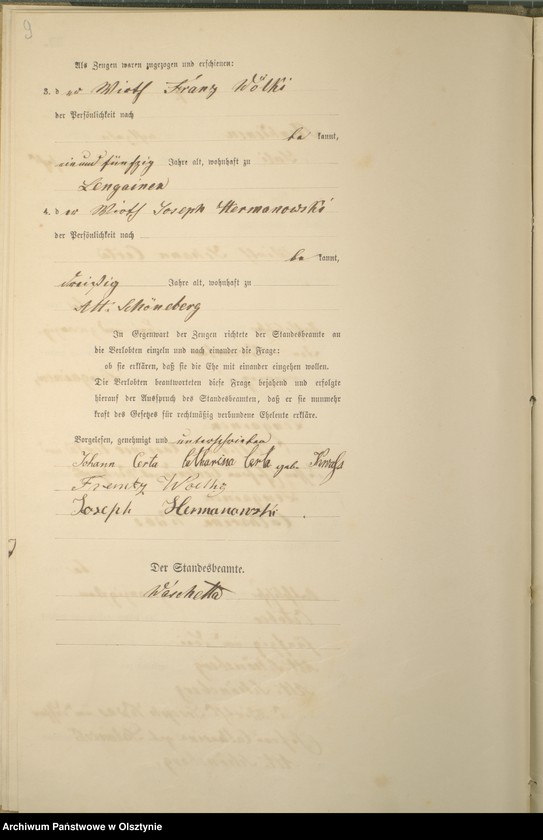 9
Als Zeugen waren zugezogen und erschienen:
3. der Wirth Franz Wölki
der Persönlichkeit nach
be kannt,
einundfünfzig Jahre alt, wohnhaft zu
Lengainen
4. der Wirth Joseph Hermanowski
der Persönlichkeit nach
be kannt,
dreißig Jahre alt, wohnhaft zu
Alt-Schöneberg
In Gegenwart der Zeugen richtete der Standesbeamte an
die Verlobten einzeln und nach einander die Frage:
ob sie erklären, daß sie die Ehe mit einander eingehen wollen.
Die Verlobten beantworteten diese Frage bejahend und erfolgte
hierauf der Ausspruch des Standesbeamten, daß er sie nunmehr
kraft des Gesetzes für rechtmäßig verbundene Eheleute erkläre.
Vorgelesen, genehmigt und unterschrieben
Johann Certa Catharina Certa geb.
Joseph Hermanowski.
Der Standesbeamte.
Archiwum Państwowe w Olsztynie